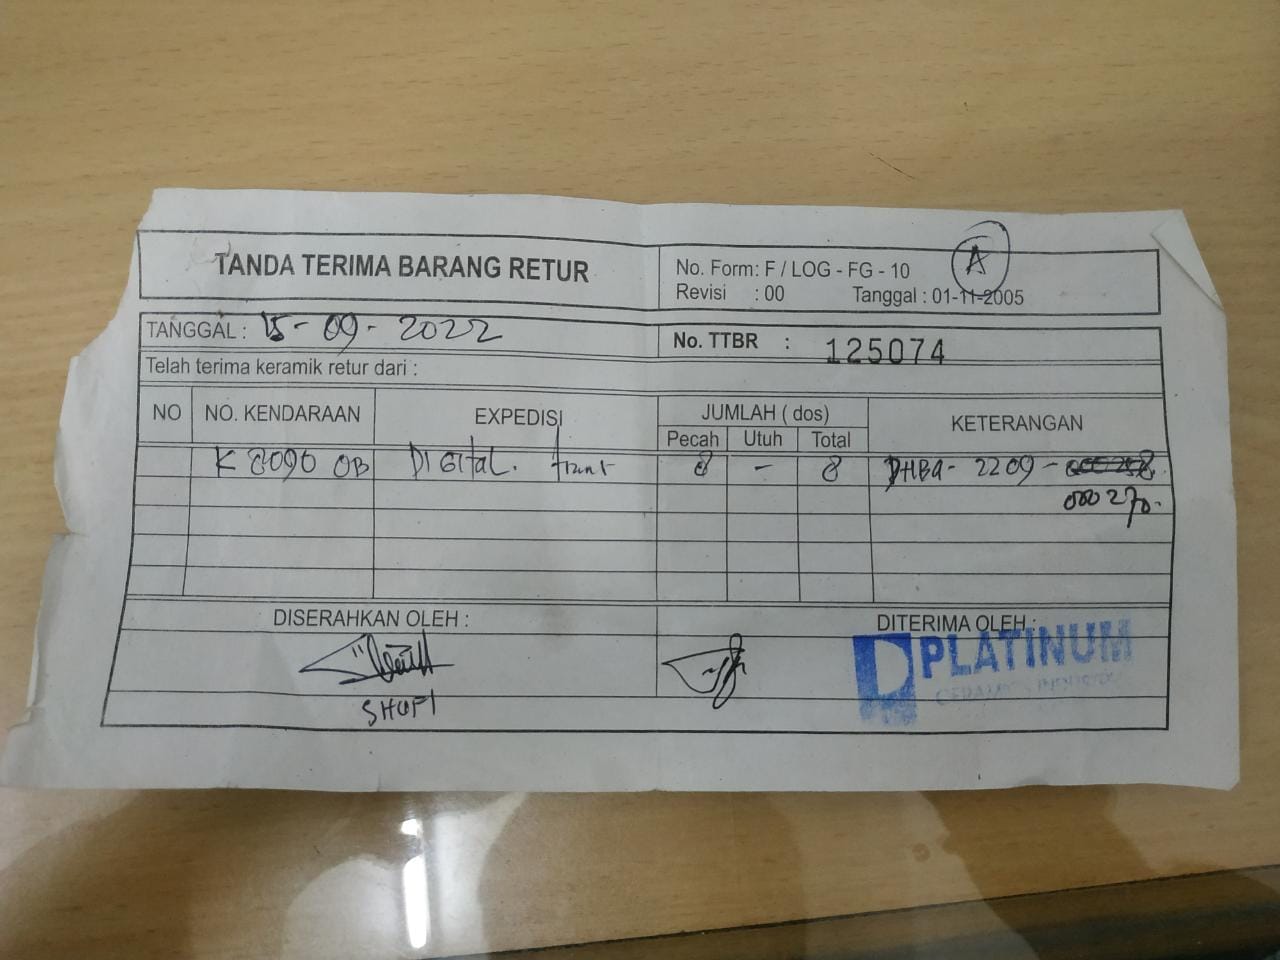 TANDA TERIMA BARANG RETUR
No. Form: F / LOG - FG - 10
A
Revisi : 00 Tanggal : 01-11-2005
TANGGAL : 15-09-2022
No. TTBR : 125074
Telah terima keramik retur dari :
NO NO. KENDARAAN EXPEDISI JUMLAH ( dos) KETERANGAN
Pecah Utuh Total
K 8090 OB DIGITAL. trans 8 - 8 DHBA - 2209 -
000270.
DISERAHKAN OLEH : DITERIMA OLEH :
PLATINUM
CERAMICS INDUSTRY
SHOFI